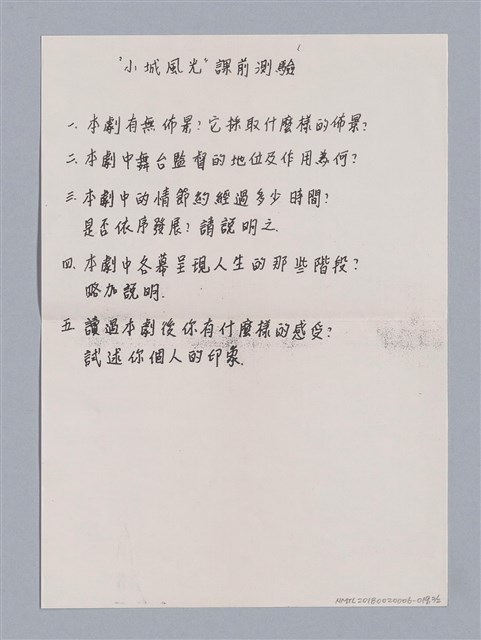 "小城風光"課前測驗
一、本劇有無佈景?它採取什麼樣的佈景?
二、本劇中舞台監督的地位及作用為何?
三、本劇中的情節約經過多少時間?
是否依序發展?請說明之.
四、本劇中各幕呈現人生的那些階段?
略加說明.
五、讀過本劇後你有什麼樣的感受?
試述你個人的印象.